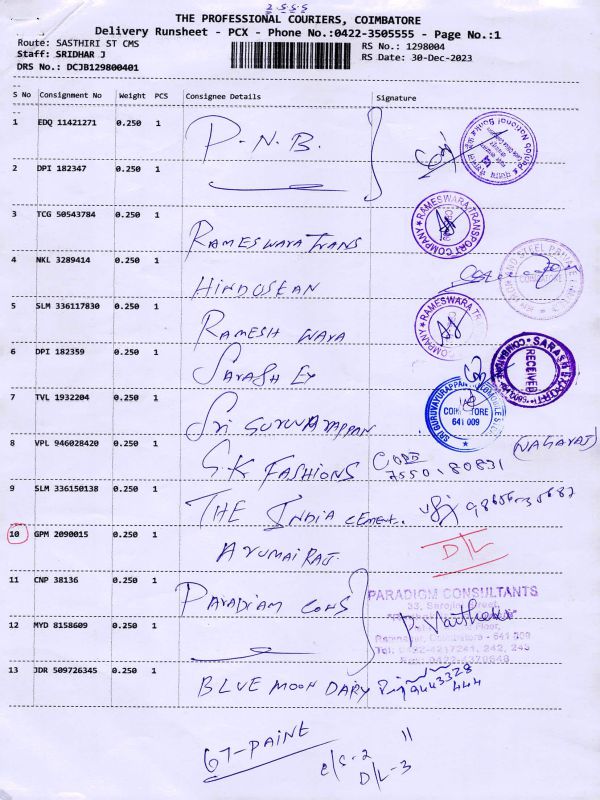 2 5 5 5
THE PROFESSIONAL COURIERS, COIMBATORE
Delivery Runsheet - PCX - Phone No.:0422-3505555 - Page No.:1
Route: SASTHIRI ST CMS
RS No.: 1298004
Staff: SRIDHAR J
RS Date: 30-Dec-2023
DRS No.: DCJB129800401
S No Consignment No Weight PCS Consignee Details Signature
1 EDQ 11421271 0.250 1 P.N.B.
2 DPI 182347 0.250 1
3 TCG 50543784 0.250 1 RAMESWARA TRANS RAMESWARA TRANSPORT COMPANY
4 NKL 3289414 0.250 1 HINDUSEAN
5 SLM 336117830 0.250 1 RAMESH WARA RAMESWARA TRA COMPANY
6 DPI 182359 0.250 1 SARASH EX RECEIVED
7 TVL 1932204 0.250 1 SRI GURUVARAPPAN COIMBATORE 641 009
8 VPL 946028420 0.250 1 S.K FASHIONS (NAGARAJ)
9 SLM 336150138 0.250 1 THE INDIA CEMENT..
10 GPM 2090015 0.250 1 ARUMAI RAJ. D/L
11 CNP 38136 0.250 1 PARADIAM CONS PARADIGM CONSULTANTS
12 MYD 8158609 0.250 1
Ramnagar, Coimbatore - 641 009
Tel: 0422-4217241, 242, 243
13 JDR 509726345 0.250 1 BLUE MOON DARY 9443328
444
67-PAINT
C/S-2 "
D/L-3